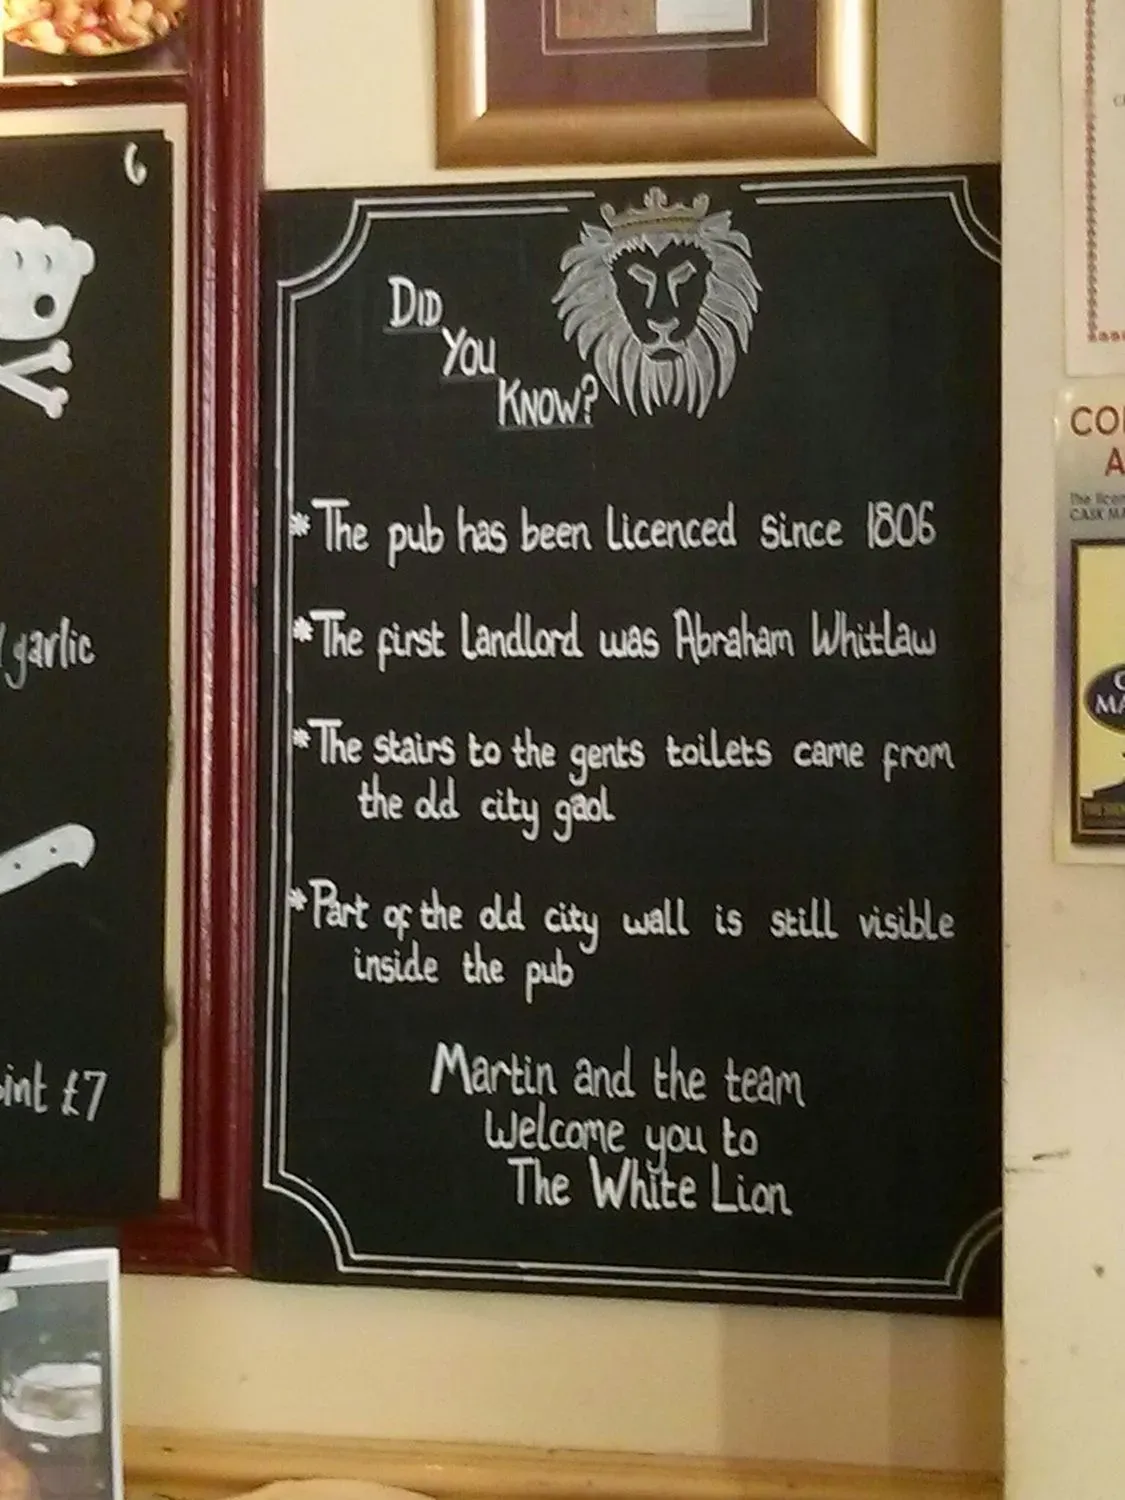 6
garlic
£7
DID
YOU
KNOW?
*The pub has been licenced since 1806
*The first landlord was Abraham Whitlaw
*The stairs to the gents toilets came from
the old city gaol
*Part of the old city wall is still visible
inside the pub
Martin and the team
Welcome you to
The White Lion
The
CASK